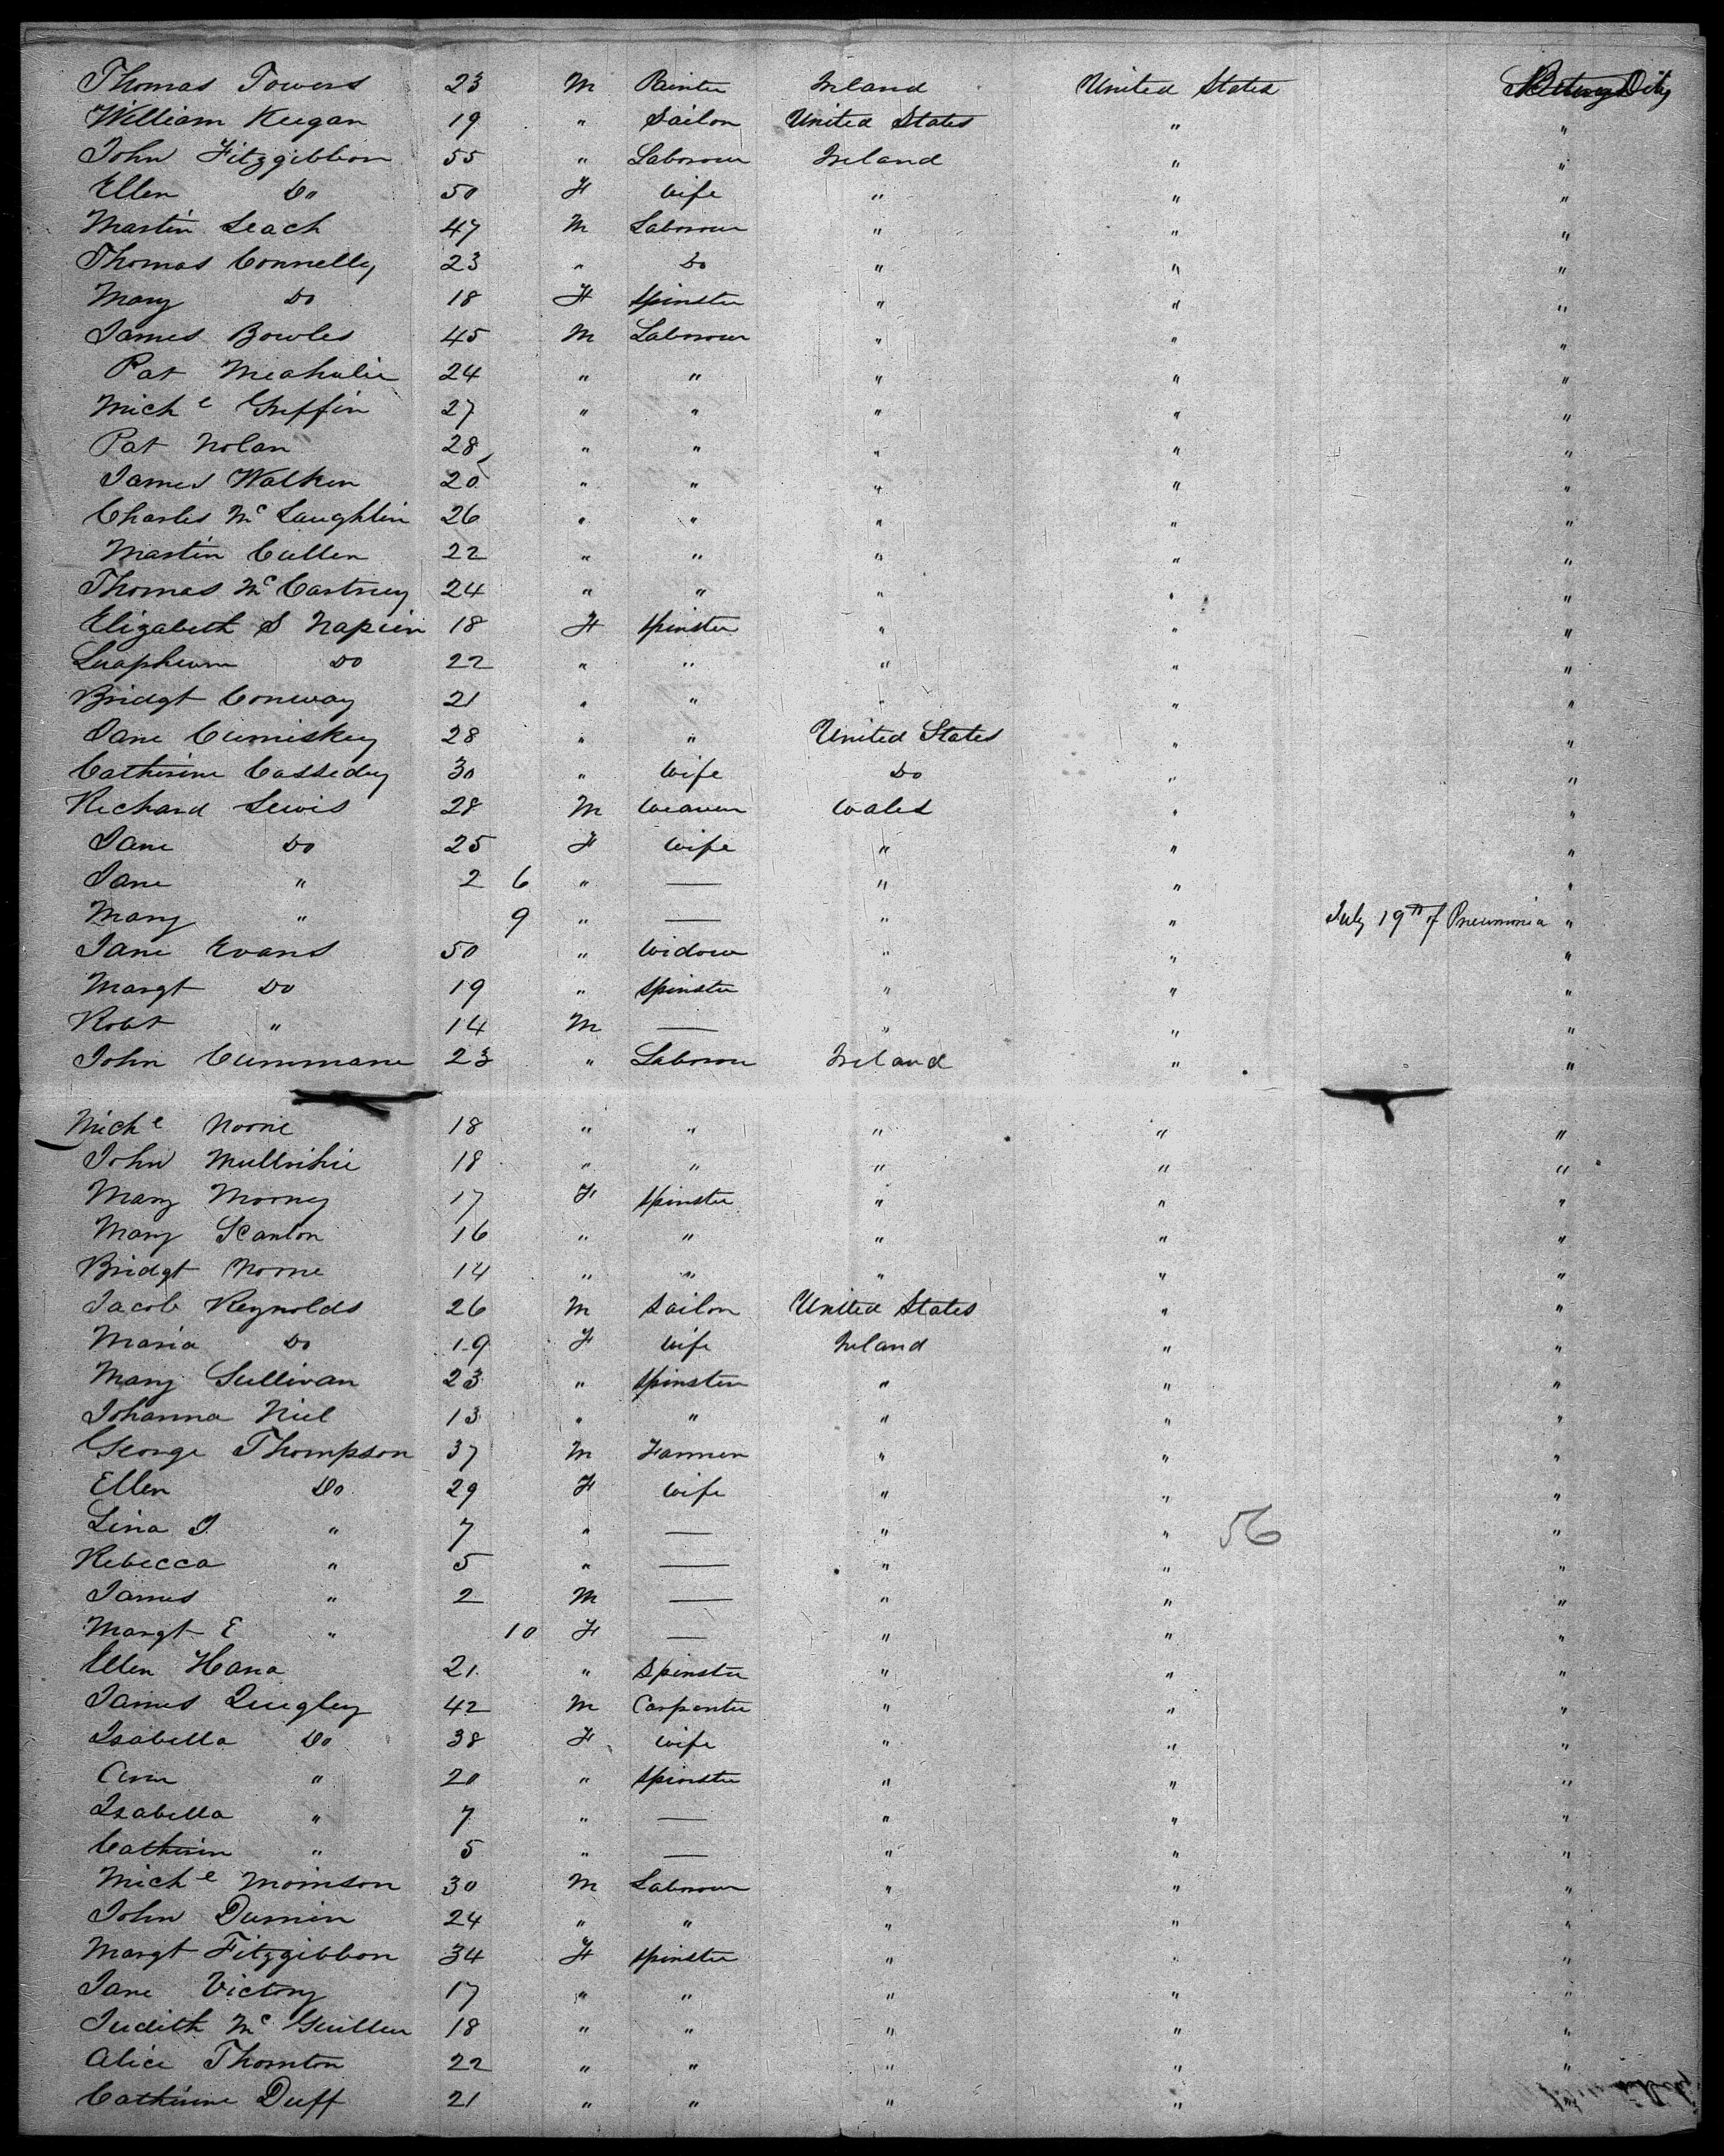 Thomas Towers 23 M Painter Ireland United States City
William Keegan 19 " Sailor United States " "
John Fitzgibbon 55 " Labourer Ireland " "
Ellen Do 50 F Wife " " "
Martin Leach 47 M Labourer " " "
Thomas Connelly 23 " Do " " "
Mary Do 18 F Spinster " " "
James Bowles 45 M Labourer " " "
Pat 24 " " " " "
Mich l Griffin 27 " " " " "
Pat Nolan 28 " " " " "
James Walker 20 " " " " "
Charles Mc Laughlin 26 " " " " "
Martin Cullen 22 " " " " "
Thomas Mc Cartney 24 " " " " "
Elizabeth S Napier 18 F Spinster " " "
Do 22 " " " " "
Bridgt Conway 21 " " " " "
Jane Cumiskey 28 " " United States " "
Catherine Cassedey 30 " Wife Do " "
Richard Lewis 28 M Weaver Wales " "
Jane Do 25 F Wife " " "
Jane " 2 6 " — " " "
Mary " 9 " — " " July 19th of Pneumonia "
Jane Evans 50 " Widow " " "
Margt Do 19 " Spinster " " "
Robt " 14 M — " " "
John Cummane 23 " Labourer Ireland " "
Mich l Noone 18 " " " " "
John 18 " " " " "
Mary Mooney 17 F Spinster " " "
Mary Scanlon 16 " " " " "
Bridgt Noone 14 " " " " "
Jacob Reynolds 26 M Sailor United States " "
Maria Do 19 F Wife Ireland " "
Mary Sullivan 23 " Spinster " " "
Johanna Niel 13 " " " " "
George Thompson 37 M Farmer " " "
Ellen Do 29 F Wife " " "
Lina J. " 7 " — " " 56 "
Rebecca " 5 " — " " "
James " 2 M — " " "
Margt E " 10 F — " " "
Ellen Hana 21 " Spinster " " "
James Quigley 42 M Carpenter " " "
Isabella Do 38 F Wife " " "
Ann " 20 " Spinster " " "
Isabella " 7 " — " " "
Catherin " 5 " — " " "
Mich l Morrison 30 M Labourer " " "
John 24 " " " " "
Margt Fitzgibbon 34 F Spinster " " "
Jane Victory 17 " " " " "
Judith Mc 18 " " " " "
Alice Thornton 22 " " " " "
Catherine Duff 21 " " " "